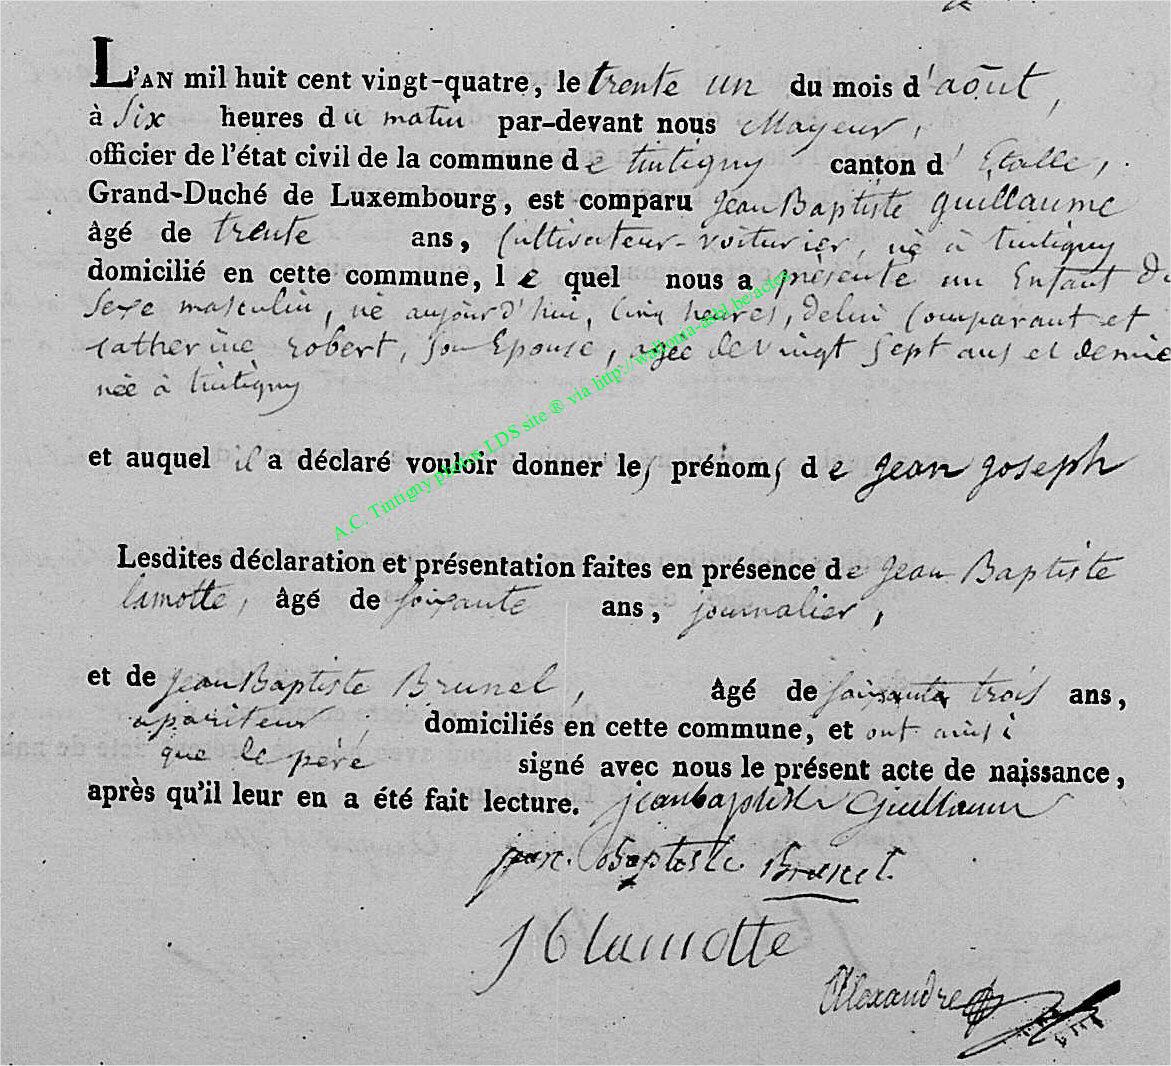 L'AN mil huit cent vingt-quatre, le trente un du mois d'août,
à Six heures du matin par-devant nous Mayeur,
officier de l'état civil de la commune de tintigny canton d'Etalle,
Grand-Duché de Luxembourg, est comparu Jean Baptiste guillaume
âgé de trente ans, Cultivateur-voiturier, né à tintigny
domicilié en cette commune, le quel nous a présenté un Enfant du
Sexe masculin, né aujourd'hui, Cinq heures, de lui Comparant et
catherine robert Son Epouse, agée de vingt Sept ans et demie
née à tintigny
et auquel il a déclaré vouloir donner les prénoms de jean joseph
Lesdites déclaration et présentation faites en présence de jean Baptiste
lamotte, âgé de soixante ans, journalier,
et de jean Baptiste Brunel, âgé de soixante trois ans,
apariteur, domiciliés en cette commune, et ont ainsi
que le père signé avec nous le présent acte de naissance,
après qu'il leur en a été fait lecture. jean baptiste Guillaume
jean Baptiste Brunel.
J B lamotte
Alexandre
A.C. Tintigny photos LDS site ® via http://wallonia-asbl.be/actes